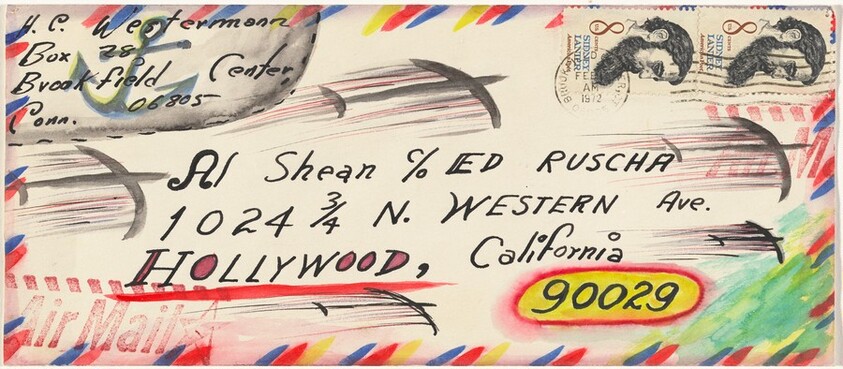 H. C. Westermann
Box 28
Brookfield Center
Conn. 06805
8 cents
SIDNEY
LANIER
American Poet
8 cents
SIDNEY
LANIER
American Poet
FEB
AM
1972
Al Shean c/o ED RUSCHA
1024 3/4 N. WESTERN Ave.
HOLLYWOOD, California
90029
Air Mail
Air M